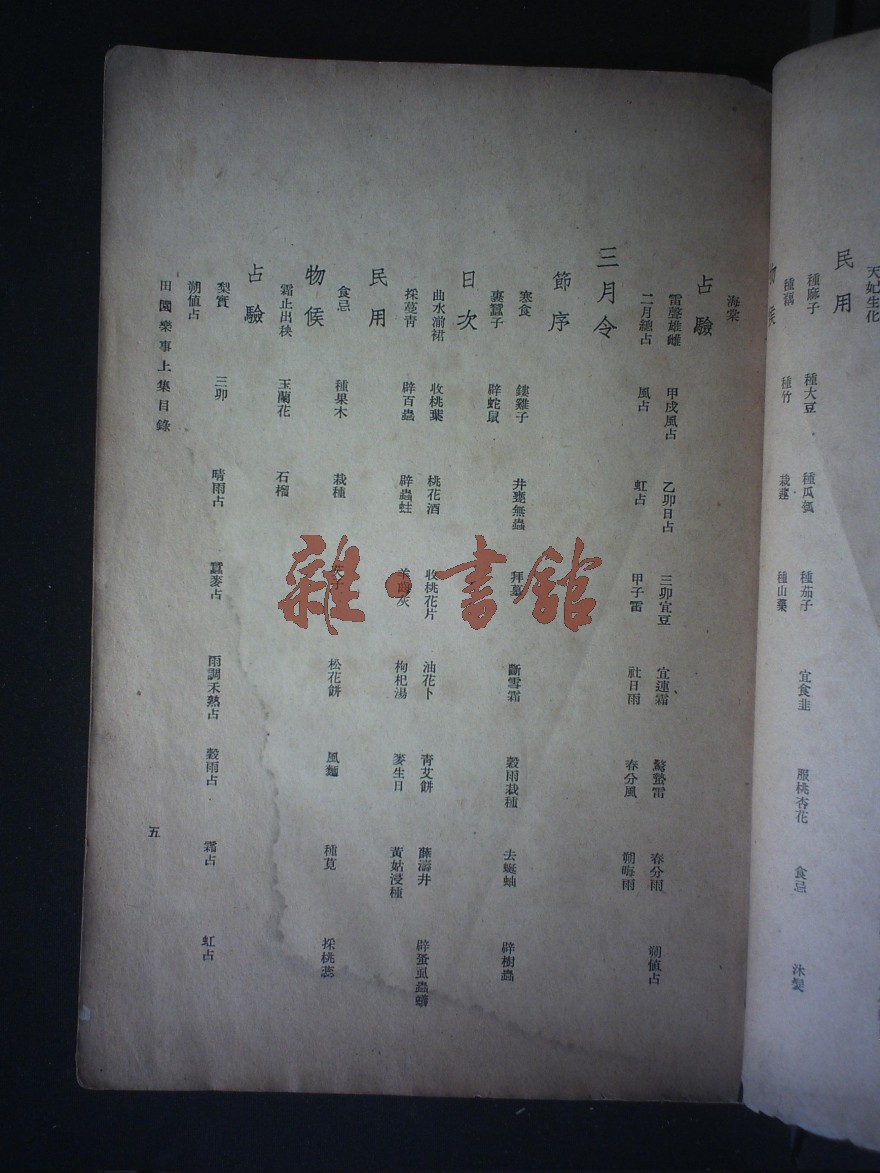 天妃生化
民用
種麻子 種大豆 種瓜瓠 種茄子 宜食韭 服桃杏花 食忌 沐髮
種藕 種竹 栽 種山藥
物候
海棠
占驗
雷聲雄雌 甲戌風占 乙卯日占 三卯宜豆 宜連霜 驚蟄雷 春分雨 朔值占
二月總占 風占 虹占 甲子雷 社日雨 春分風 朔晦雨
三月令
節序
寒食 鏤雞子 井甕無蟲 拜墓 斷雪霜 穀雨栽種 去蜒蚰 辟樹蟲
裹蠶子 辟蛇鼠
日次
曲水湔裙 收桃葉 桃花酒 收桃花片 油花卜 青艾餅 薛濤井 辟蚤虱蟲蟻
採蔓青 辟百蟲 辟蟲蛀 羊 灰 枸杞湯 麥生日 黃姑浸種
民用
食忌 種果木 栽種 松花餅 風麵 種莧 採桃蕊
物候
霜止出秧 玉蘭花 石榴
占驗
梨實 三卯 晴雨占 蠶麥占 雨調禾熟占 穀雨占 霜占 虹占
朔值占
田園樂事上集目錄
五
雜·書館